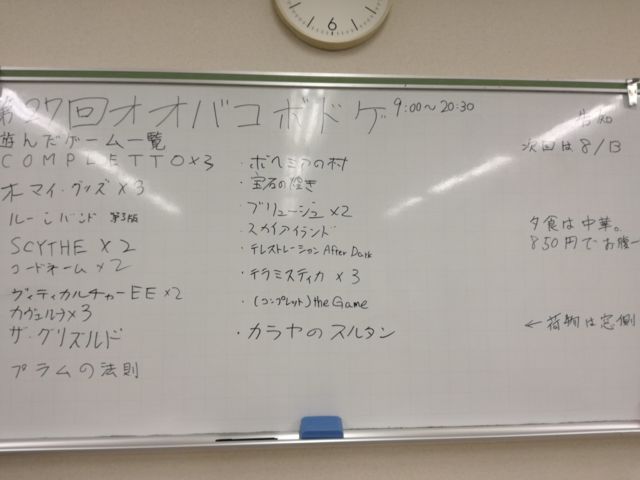 6
第27回オオバコボドゲ 9:00~20:30
遊んだゲーム一覧
COMPLETTO×3
オーマイ・グッズ×3
ルーンバンド 第3版
SCYTHE×2
コードネーム×2
ヴィティカルチャーEE×2
カヴェルナ×3
ザ・グリズルド
プラムの法則
・ボヘミアの村
・宝石の煌き
・ブリュージュ×2
・スカイアイランド
・テレストレーション After Dark
・テラミスティカ×3
・(コンプレット) the Game
・カラヤのスルタン
告知
次回は8/13
夕食は中華。
850円でお腹一
←荷物は窓側